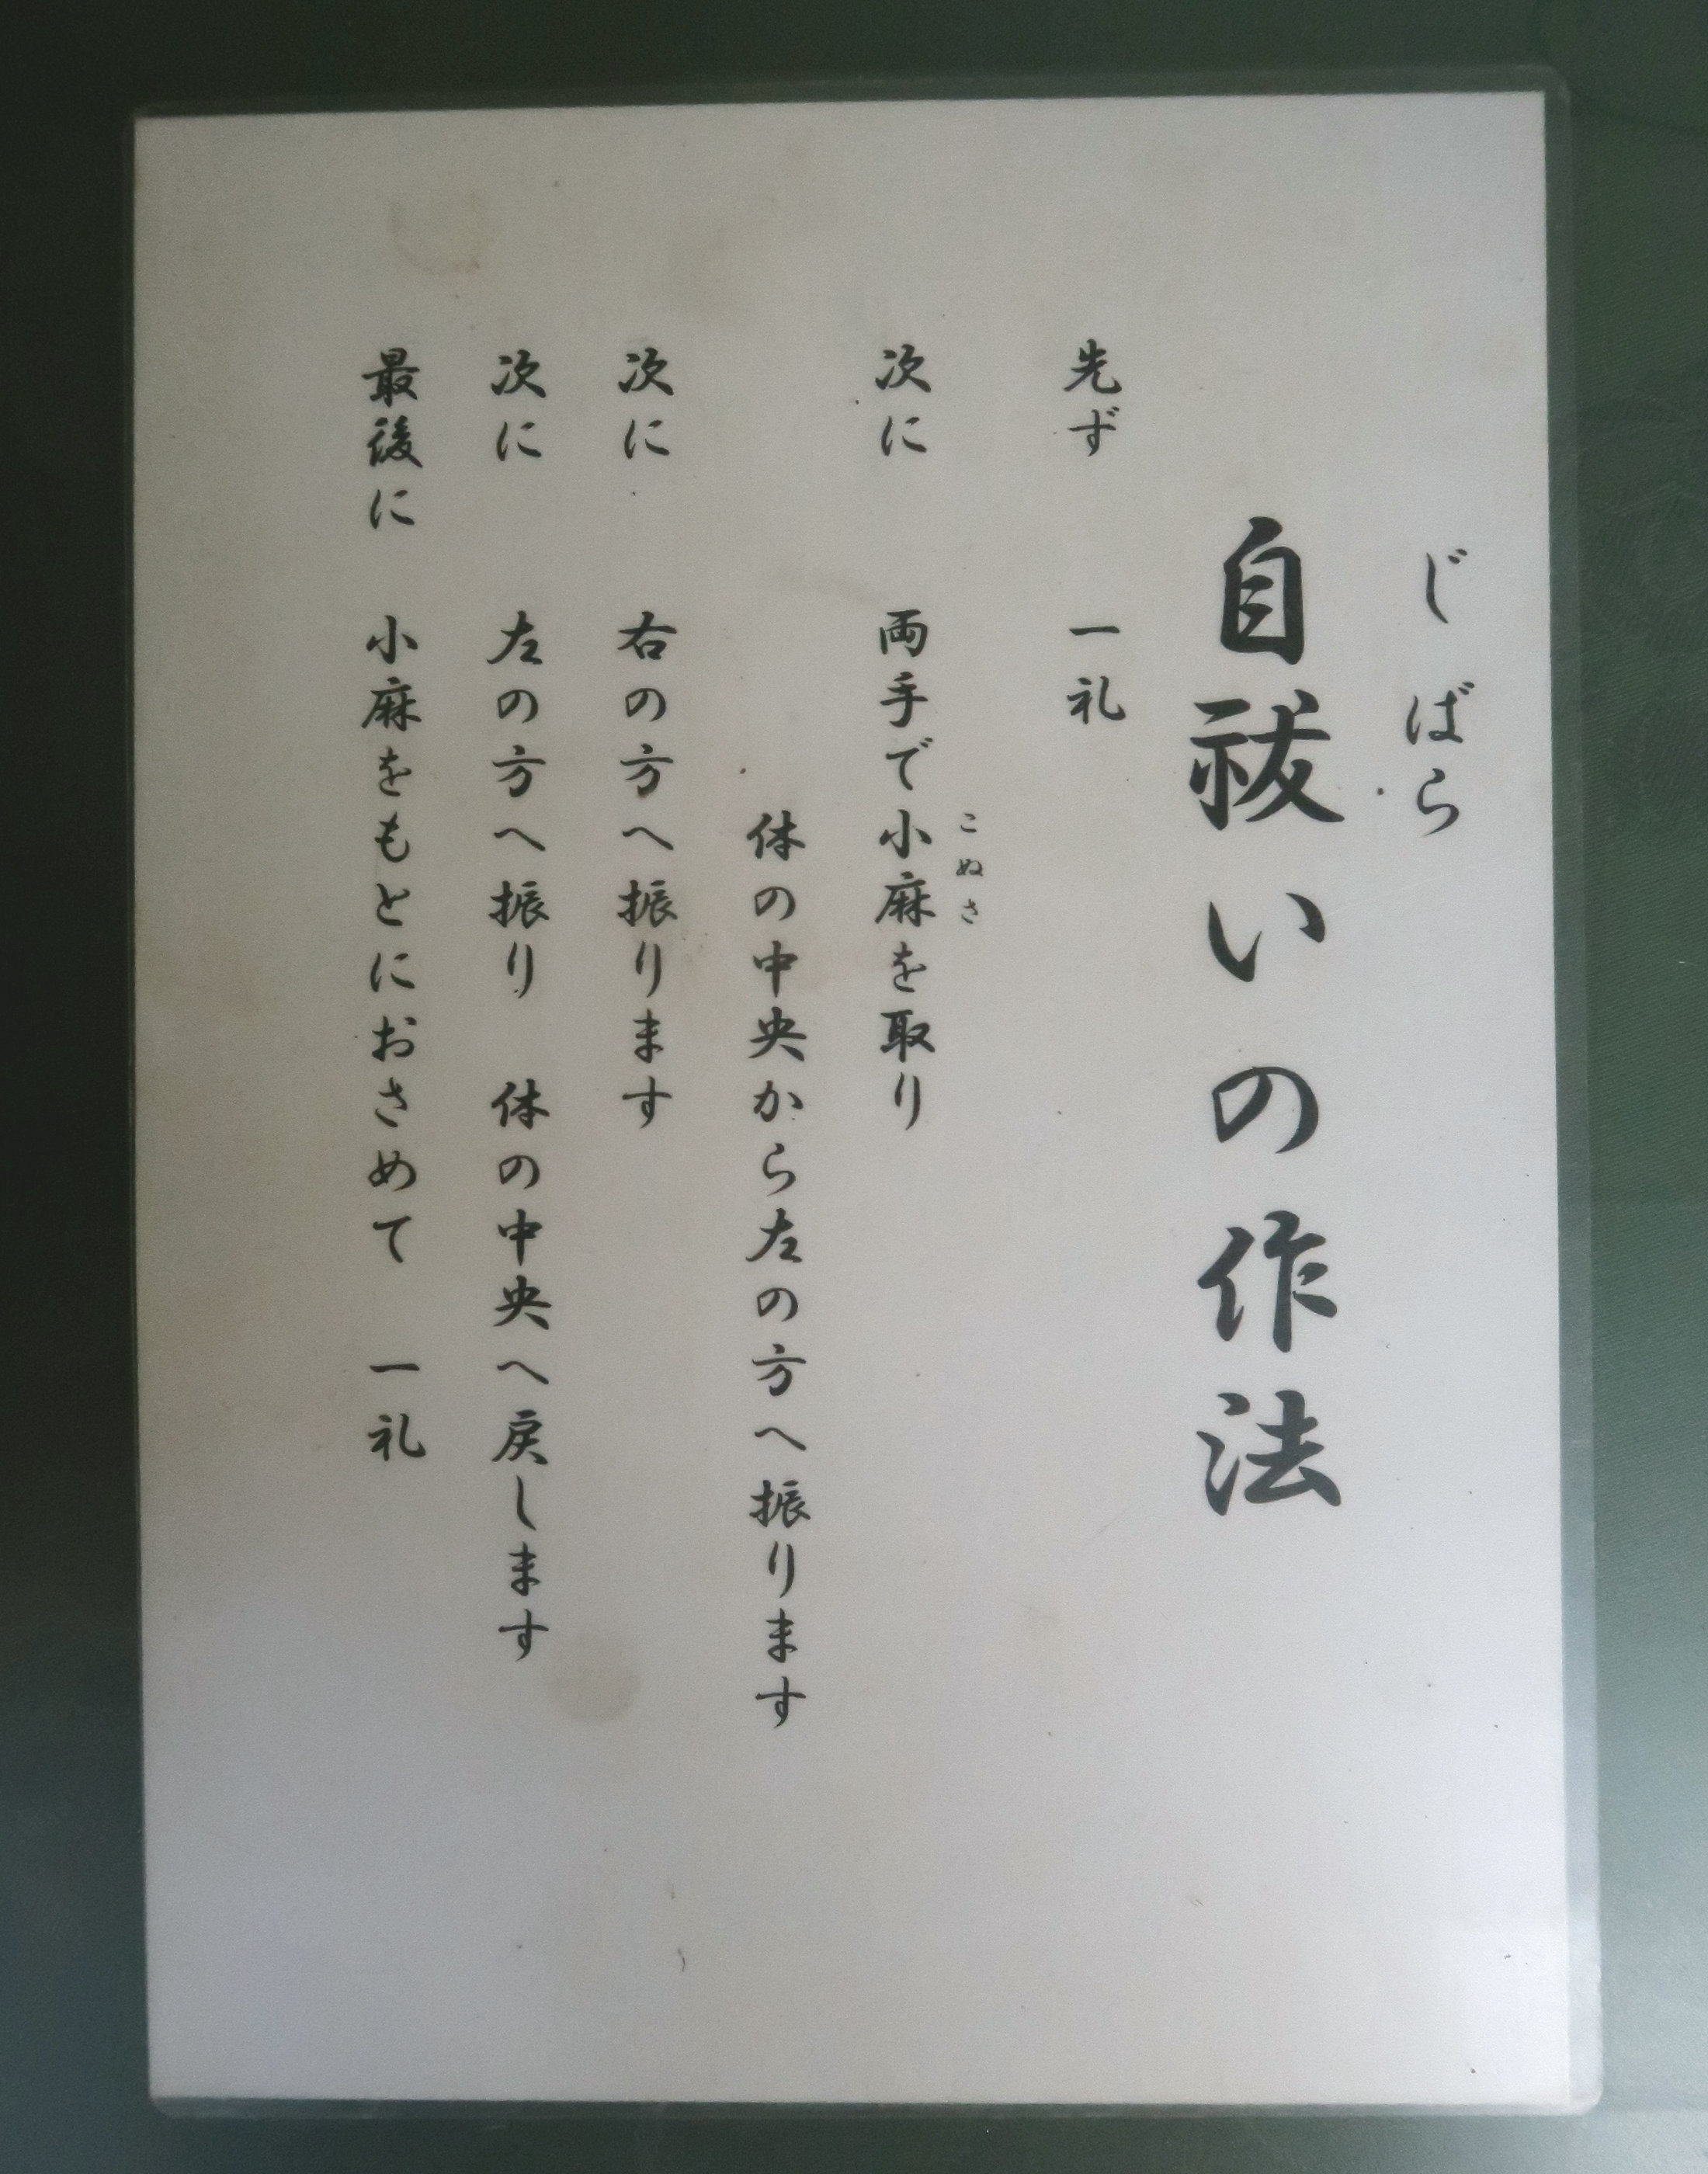 じばら
自祓いの作法
先ず　一礼
こぬさ
次に　両手で小麻を取り
体の中央から左の方へ振ります
次に　右の方へ振ります
次に　左の方へ振り　体の中央へ戻します
最後に　小麻をもとにおさめて　一礼